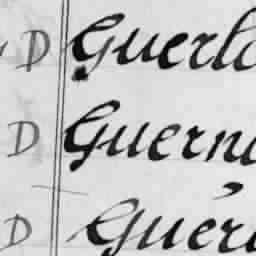 D Guerlo
D Guerne
D Guér